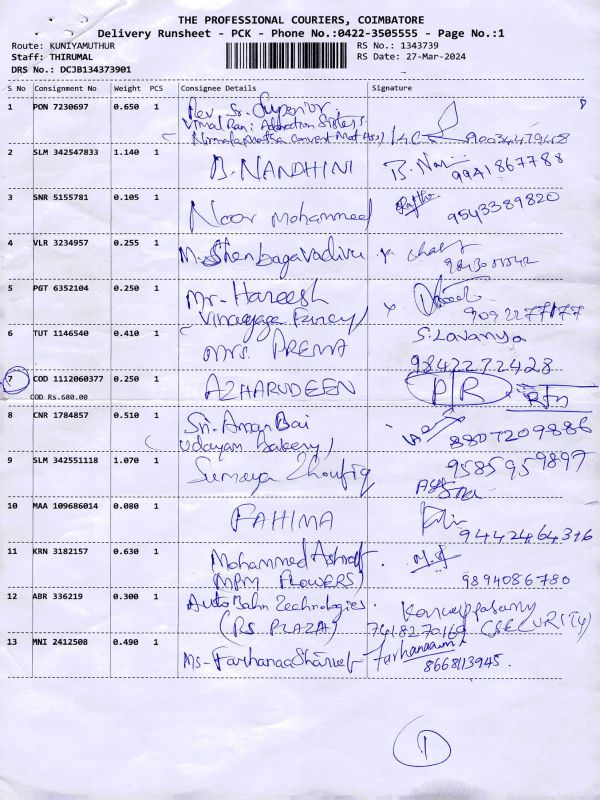 THE PROFESSIONAL COURIERS, COIMBATORE
Delivery Runsheet - PCK - Phone No.:0422-3505555 - Page No.:1
Route: KUNIYAMUTHUR
Staff: THIRUMAL
DRS No.: DCJB134373901
RS No.: 1343739
RS Date: 27-Mar-2024
S No Consignment No Weight PCS Consignee Details Signature
1 PON 7230697 0.650 1 Rev Sr. Superior
Vimal Rani Sisters
Convent 9003447948
2 SLM 342547833 1.140 1 B. NANDHINI B. Nan
9941867788
3 SNR 5155781 0.105 1 Noor Mohammed
9543389820
4 VLR 3234957 0.255 1 M. Shenbagavadivu
5 PGT 6352104 0.250 1 Mr. Hareesh
(Vinayaga Fancy) 9092277177
6 TUT 1146540 0.410 1 Mrs. PREMA S. Lavanya
9842272428
7 COD 1112060377 0.250 1 AZHARUDEEN P/R Rtn
COD Rs.680.00
8 CNR 1784857 0.510 1 Sri. Aman Bai
(Udayam Bakery) 8807209886
9 SLM 342551118 1.070 1 Sumaya 9585959897
10 MAA 109686014 0.080 1 FAHIMA
9442464316
11 KRN 3182157 0.630 1 Mohammed Ashraf
(MPM FLOWERS) 9894086780
12 ABR 336219 0.300 1 AutoBahn Technologies Karuppasamy
(RS PLAZA) 7418270169 (SECURITY)
13 MNI 2412508 0.490 1 Ms. Farhanaa Sharief farhanaam
8668113945
1